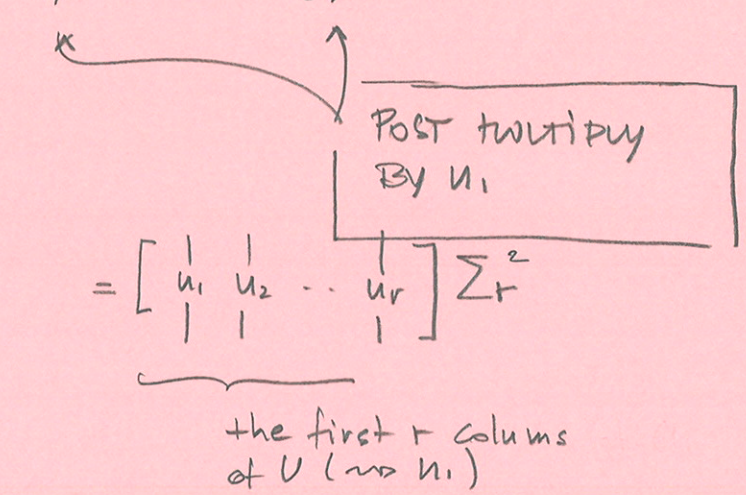 POST MULTIPLY
BY U₁
= [ u₁ u₂ ... uᵣ ] Σᵣ²
the first r colums
of U (~~> U₁)